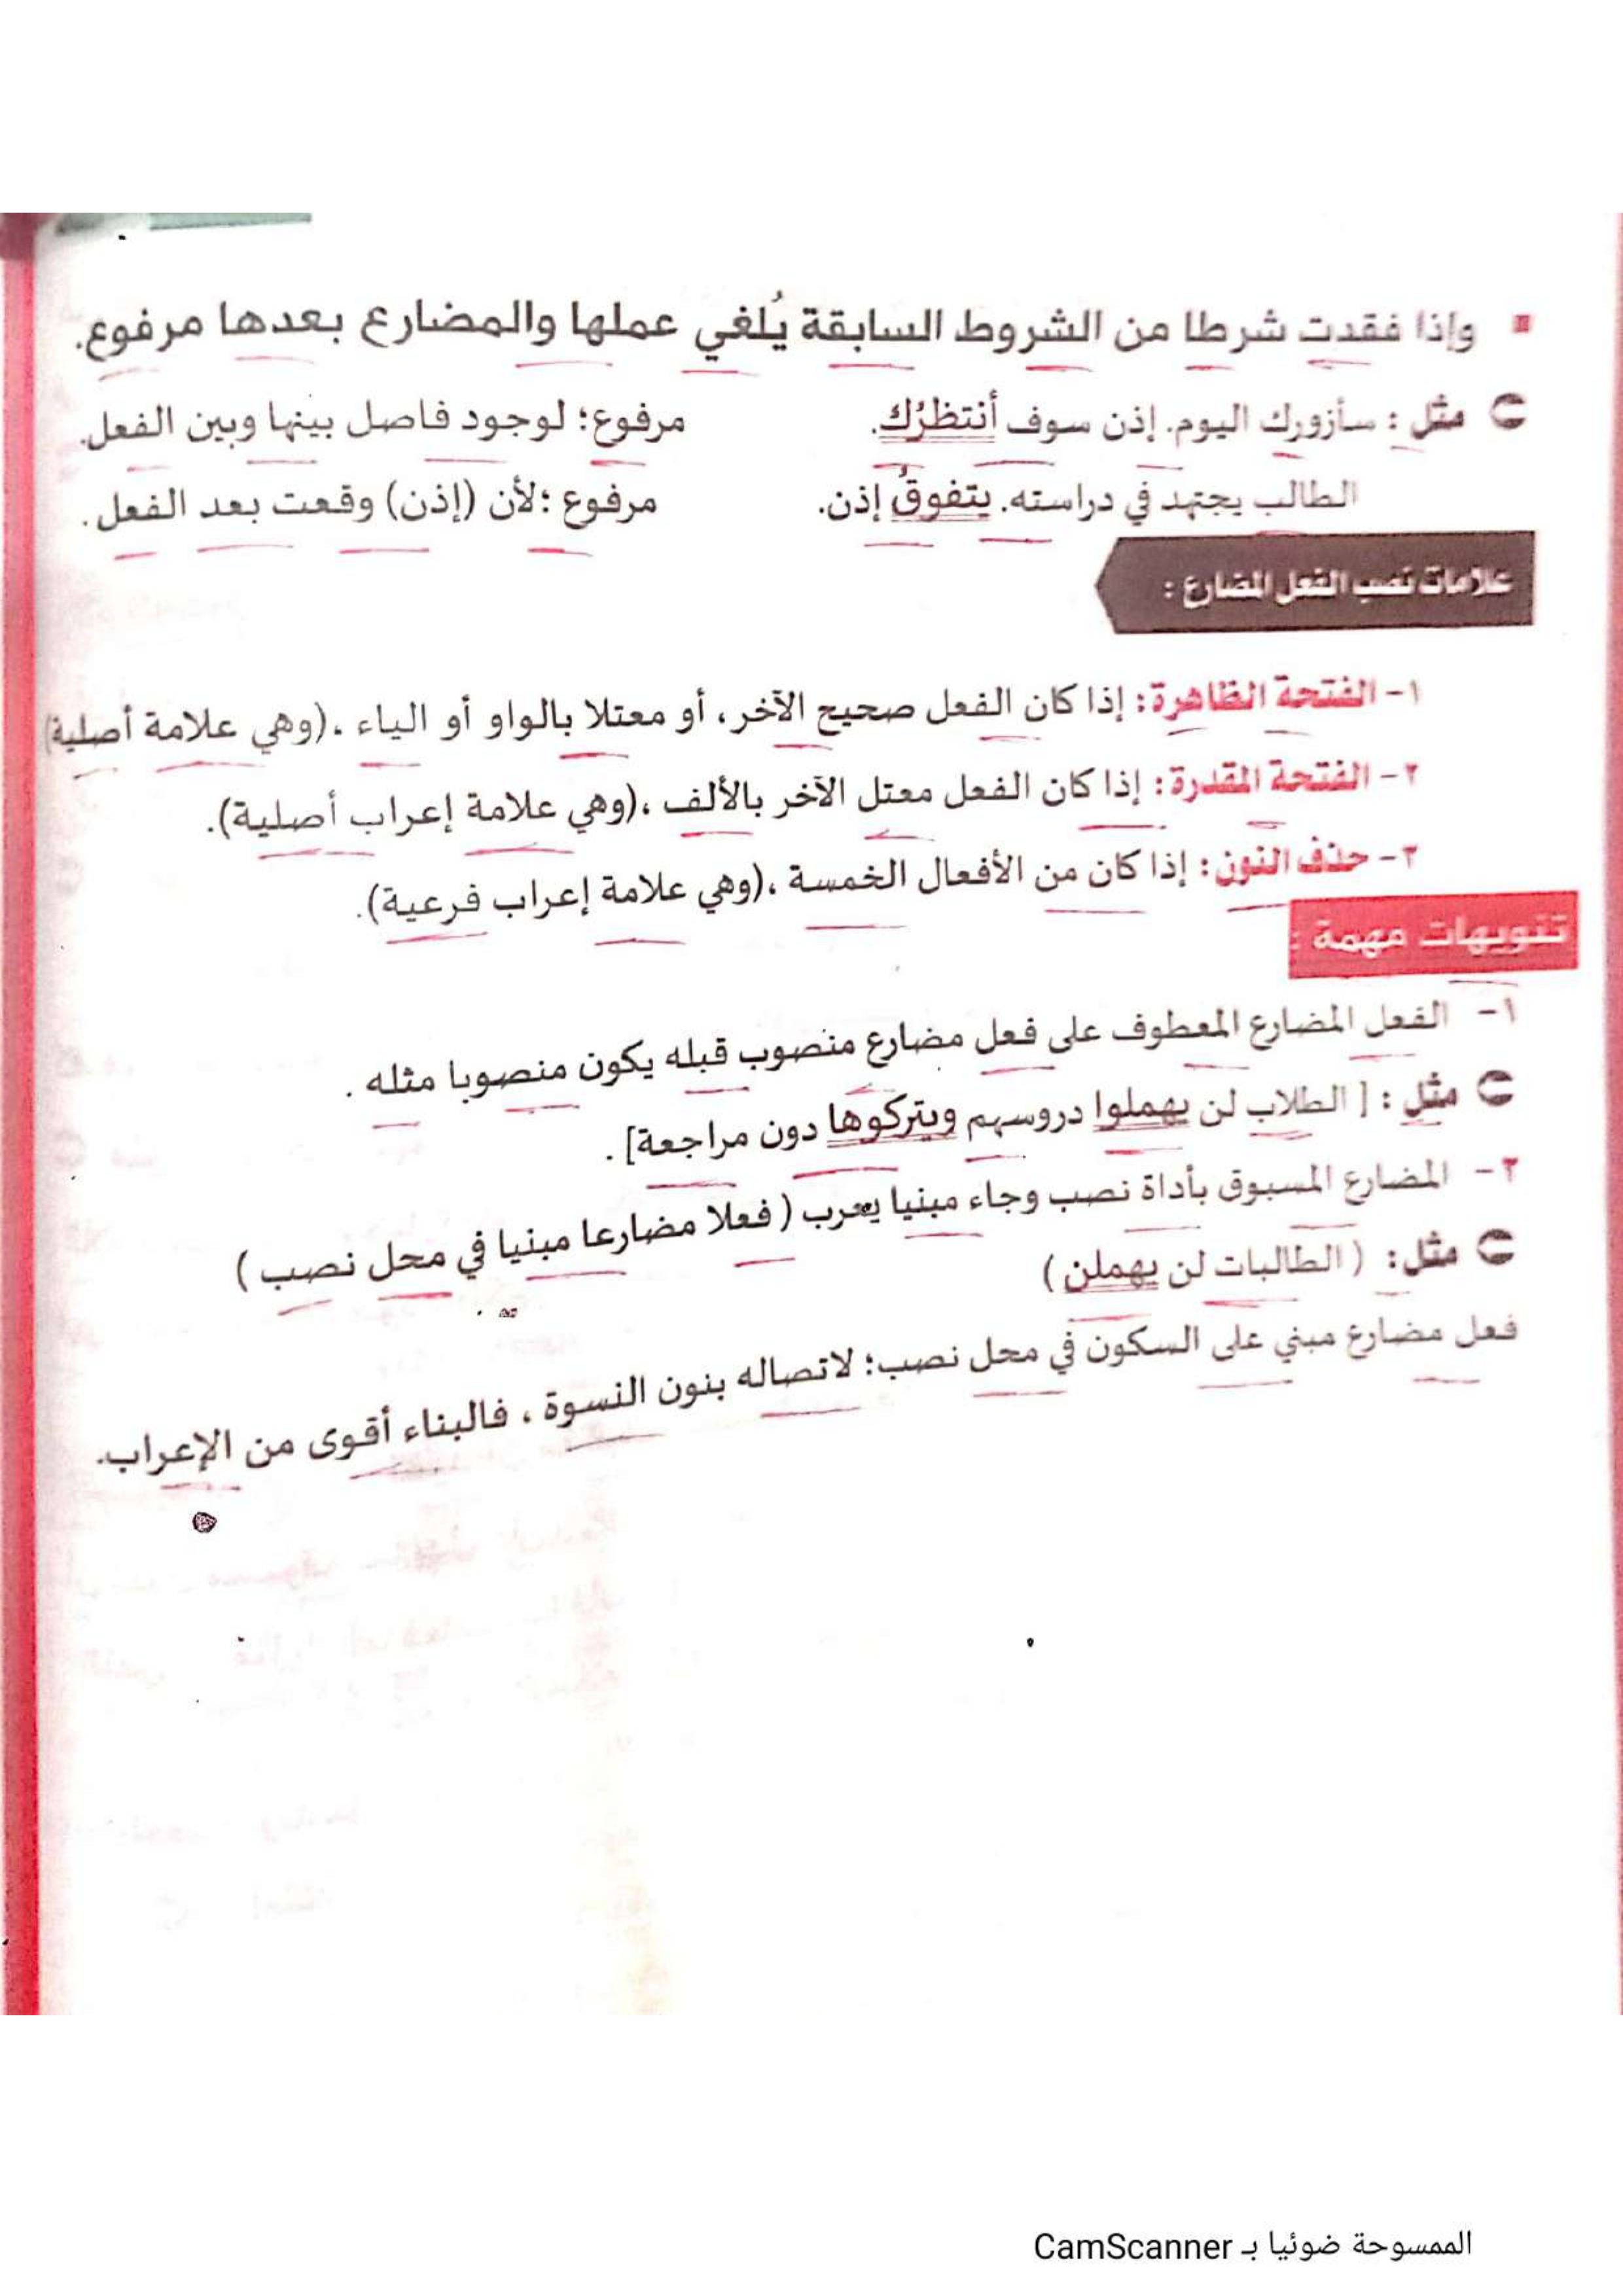 وإذا فقدت شرطا من الشروط السابقة يُلغي عملها والمضارع بعدها مرفوع.
مثل : سأزورك اليوم. إذن سوف أنتظرُك. مرفوع؛ لوجود فاصل بينها وبين الفعل.
الطالب يجتهد في دراسته. يتفوقُ إذن. مرفوع ؛لأن (إذن) وقعت بعد الفعل .
علامات نصب الفعل المضارع :
١- الفتحة الظاهرة : إذا كان الفعل صحيح الآخر، أو معتلا بالواو أو الياء ،(وهي علامة أصلية)
٢- الفتحة المقدرة : إذا كان الفعل معتل الآخر بالألف ،(وهي علامة إعراب أصلية).
٣- حذف النون : إذا كان من الأفعال الخمسة ،(وهي علامة إعراب فرعية).
تنويهات مهمة :
١- الفعل المضارع المعطوف على فعل مضارع منصوب قبله يكون منصوبا مثله .
مثل : [ الطلاب لن يهملوا دروسهم ويتركوها دون مراجعة] .
٢- المضارع المسبوق بأداة نصب وجاء مبنيا يعرب ( فعلا مضارعا مبنيا في محل نصب )
مثل: ( الطالبات لن يهملن )
فعل مضارع مبني على السكون في محل نصب؛ لاتصاله بنون النسوة ، فالبناء أقوى من الإعراب.
الممسوحة ضوئيا بـ CamScanner